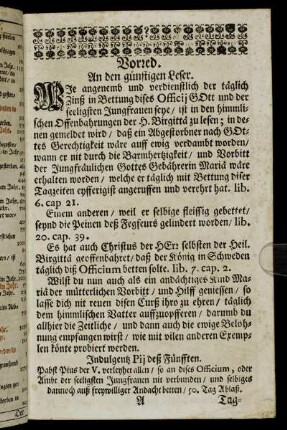 Vorred.
An den günstigen Leser.
Wie angenemb und verdienstlich der täglich
Zinß in Bettung dises Officij GOtt und der
seeligsten Jungfrauen seye / ist in den himmli-
schen Offenbahrungen der H. Birgittä zu lesen; in de-
nen gemeldet wird / daß ein Abgestorbner nach GOt-
tes Gerechtigkeit wäre auff ewig verdambt worden /
wann er nit durch die Barmhertzigkeit / und Vorbitt
der Jungfräulichen Gottes Gebährerin Mariä wäre
erhalten worden / welche er täglich mit Bettung diser
Tagzeiten eyfferigist angeruffen und verehrt hat. lib.
6. cap. 21.
Einem anderen / weil er selbige fleissig gebettet /
seynd die Peinen deß Fegfeurs gelindert worden / lib.
20. cap. 39.
Es hat auch Christus der HErr selbsten der Heil.
Birgittä geoffenbahret / daß der König in Schweden
täglich diß Officium betten solte. lib. 7. cap. 2.
Wilst du nun auch als ein andächtiges Kind Ma-
riä der mütterlichen Vorbitt / und Hilff geniessen / so
lasse dich nit reuen disen Curß ihro zu ehren / täglich
dem himmlischen Vatter auffzuopfferen / darmit du
allhier die Zeitliche / und dann auch die ewige Beloh-
nung empfangen wirst / wie mit vilen anderen Exemp-
len könte probiert werden.
Indulgentz Pij deß Fünfften.
Pabst Pius der V. verleyhet allen / so an dises Officium, oder
Ambt der seeligsten Jungfrauen nit verbunden / und selbiges
dannoch auß freywilliger Andacht betten / 50. Tag Ablaß.
A
Tag-